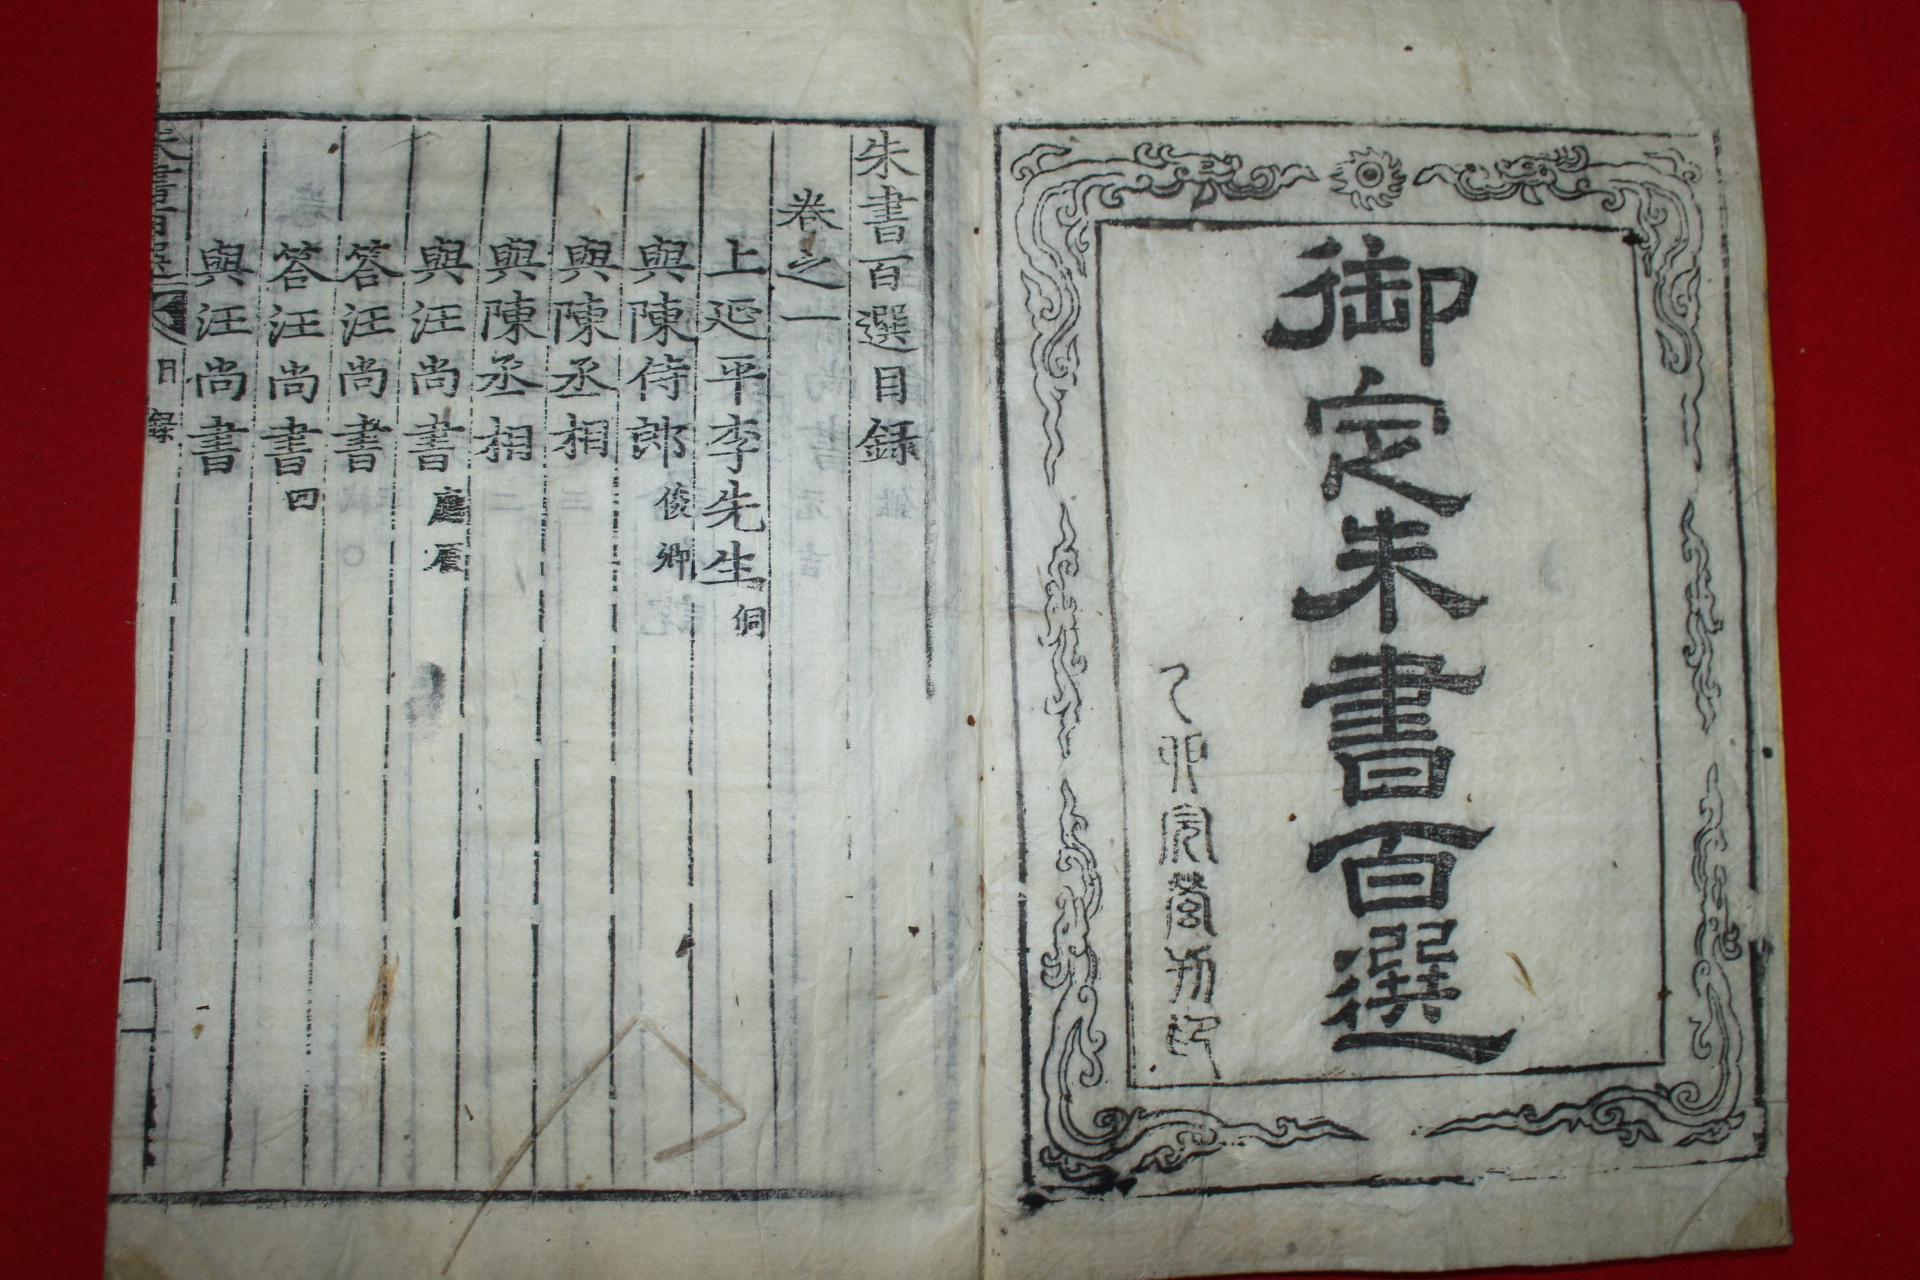 御定朱書百選
乙卯完營刊印
朱書百選目録
卷之一
上延平李先生侗
與陳侍郎俊卿
與陳丞相
與陳丞相
與汪尚書應辰
答汪尚書
答汪尚書四
與汪尚書
朱書百選 目録 一